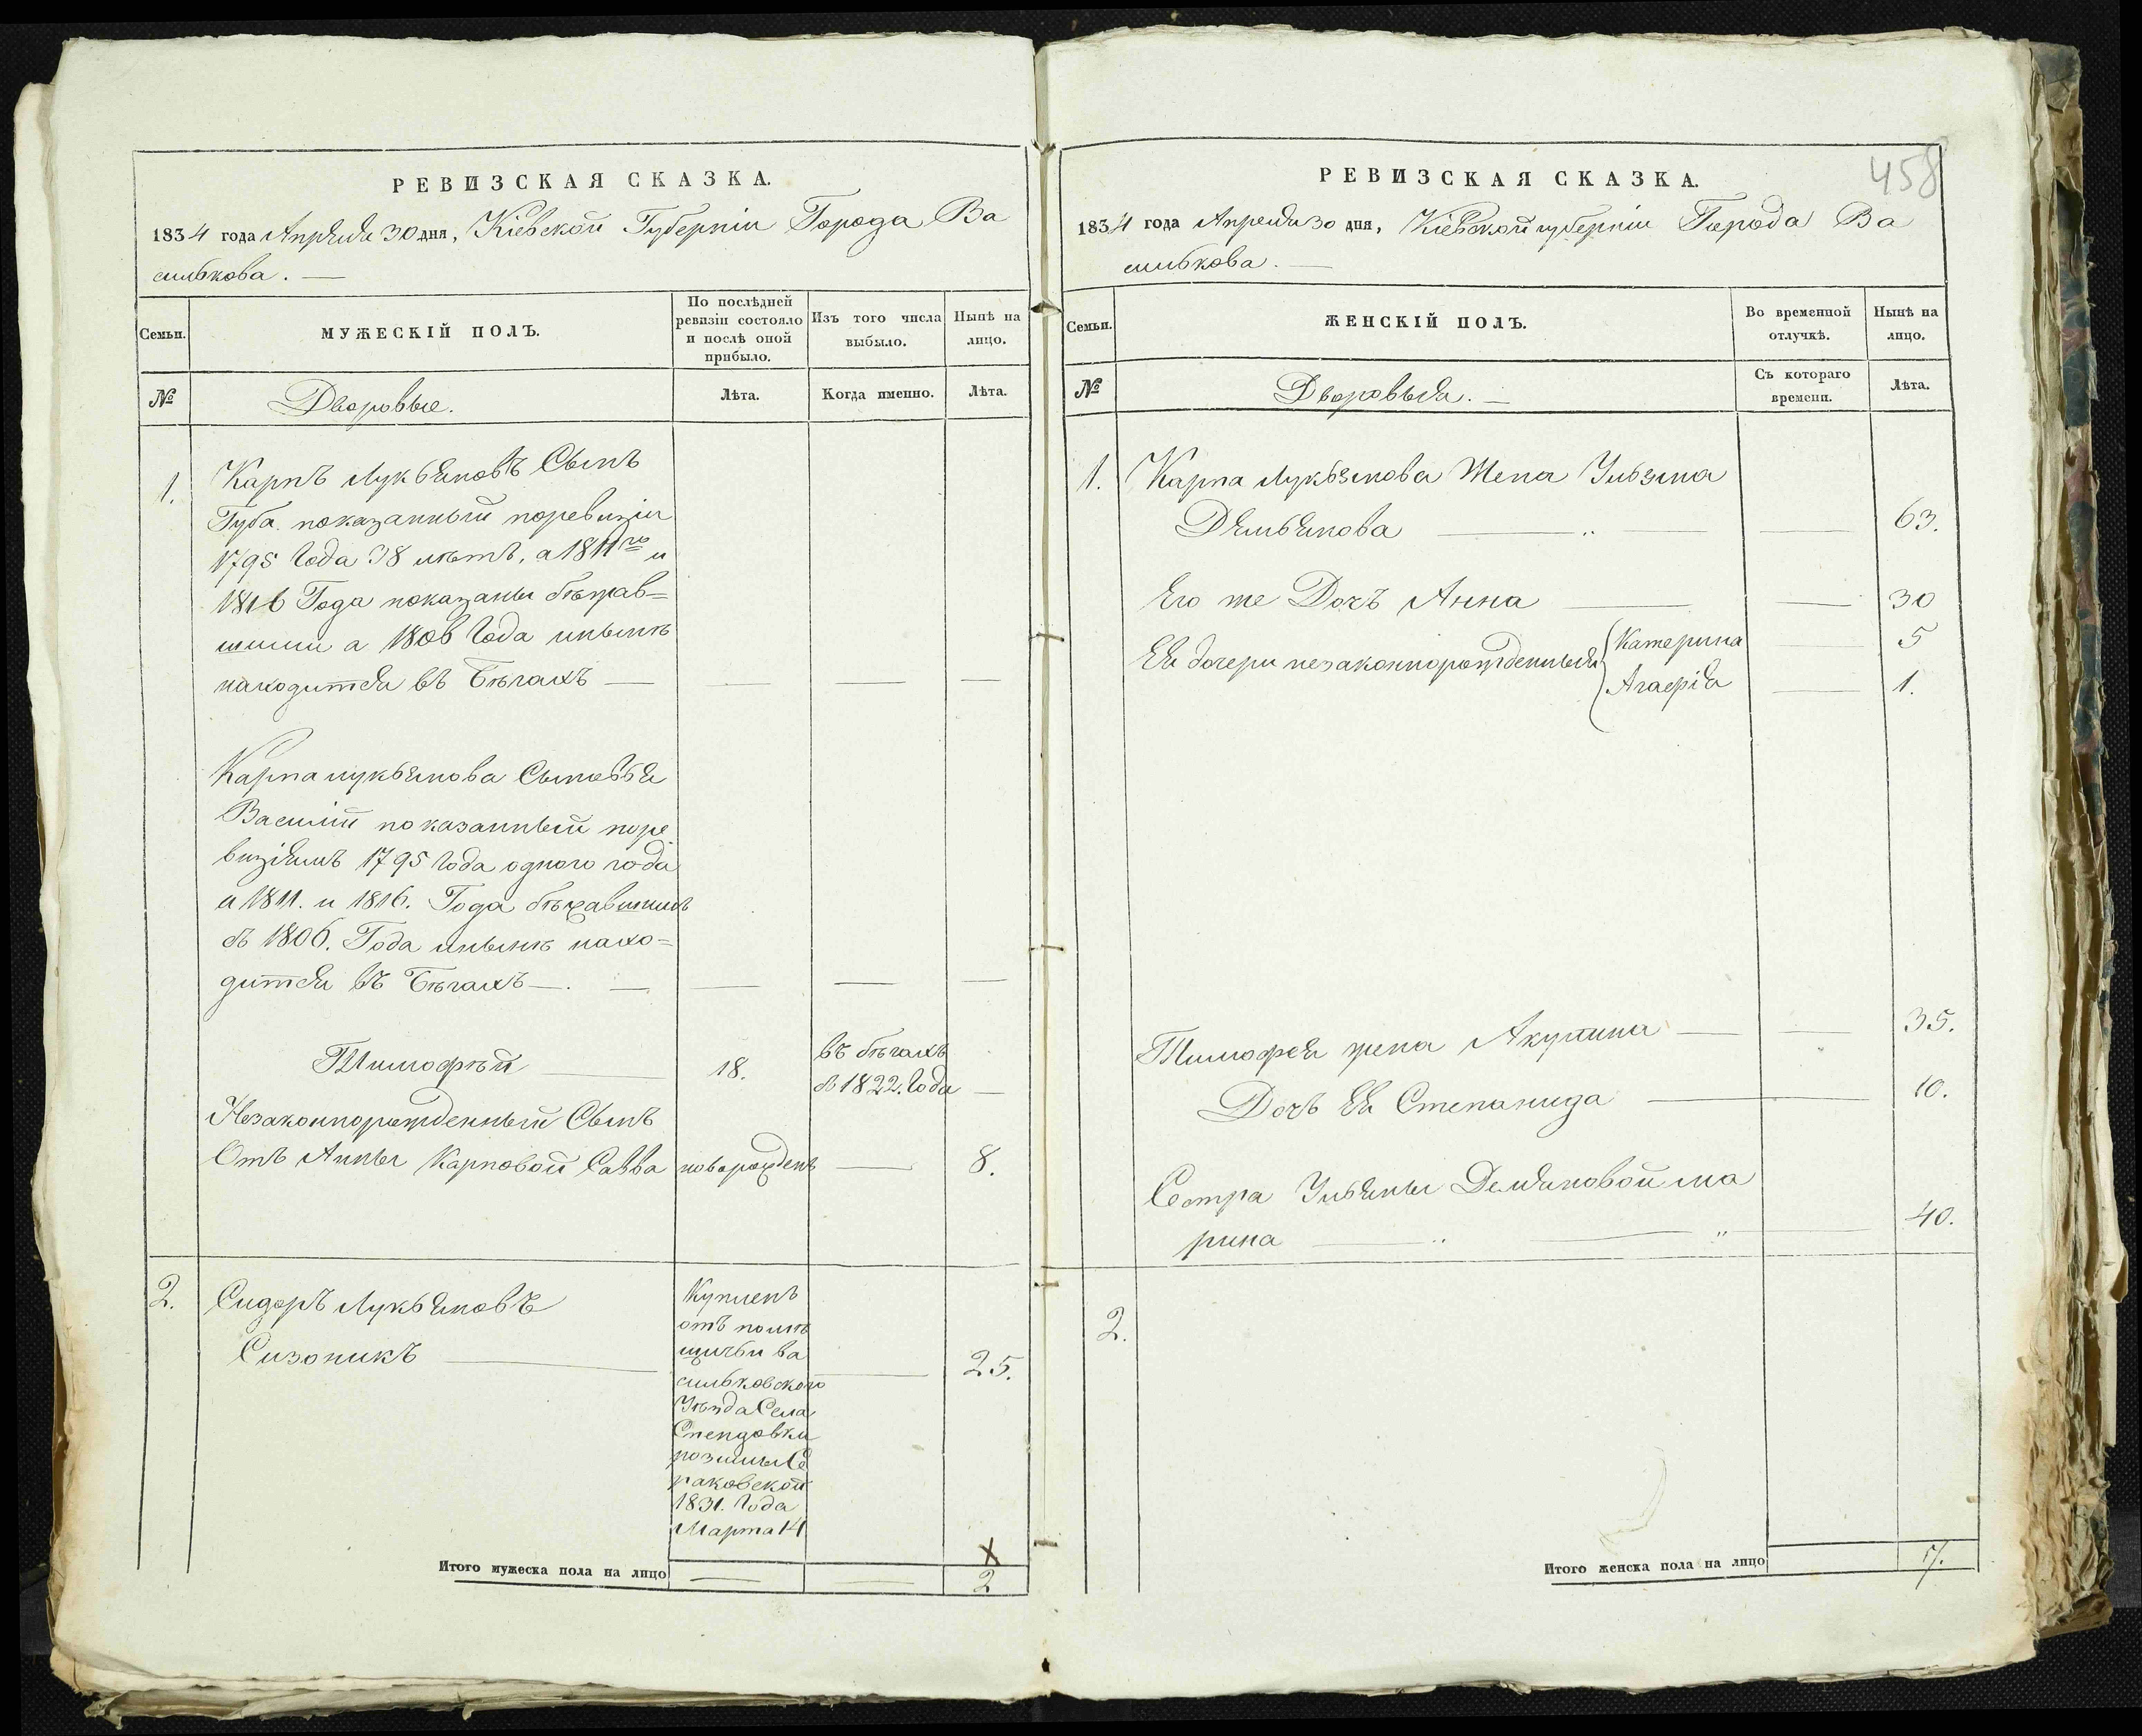 РЕВИЗСКАЯ СКАЗКА.
1834 года Апрѣля 30 дня, Кіевской Губерніи Города Ва
силькова. —
Семьи.
МУЖЕСКІЙ ПОЛЪ.
По послѣдней
ревизіи состояло
и послѣ оной
прибыло.
Изъ того числа
выбыло.
Нынѣ на
лицо.
№
Дворовые.
Лѣта.
Когда именно.
Лѣта.
1.
Карпъ Лукьяновъ Сынъ
Губа показанный поревизіи
1795 Года 38 лѣтъ, а 1811го и
1816 Года показаны бѣжав=
шими а 1806 Года инынѣ
находится въ Бѣгахъ —
Карпа лукьянова Сыновья
Василій показанный поре
визіямъ 1795 Года одного года
а 1811. и 1816. Года бѣжавшимъ
съ 1806. Года инынѣ нахо=
дится въ Бѣгахъ —. —
Тимофѣй — 18.
въ бѣгахъ
съ 1822. Года —
Незаконнорожденный Сынъ
Отъ Анны Карповой Савва новорожденъ — 8.
2.
Сидоръ Лукьяновъ
Сизоникъ — 25.
Купленъ
отъ помѣ
щичьи ва
сильковского
Уѣзда Села
раковской
1831. Года
Марта 14
Итого мужеска пола на лицо — — 2
458
РЕВИЗСКАЯ СКАЗКА.
1834 года Апреля 30 дня, Кіевской губерніи Города Ва
силькова. —
Семьи.
ЖЕНСКІЙ ПОЛЪ.
Во временной
отлучкѣ.
Нынѣ на
лицо.
№
Дворовыя. —
Съ котораго
времени.
Лѣта.
1.
Карпа Лукьянова Жена Ульяна
Дямьянова — — 63.
Его же Дочъ Анна — — 30
Ея дочери незаконнорожденныя
Катерина — 5
Агафія — 1.
Тимофея жена Акулина — — 35.
Дочъ Ея Степанида — 10.
Сестра Ульяны Демяновой ма
рина — — 40.
2.
Итого женска пола на лицо 7.